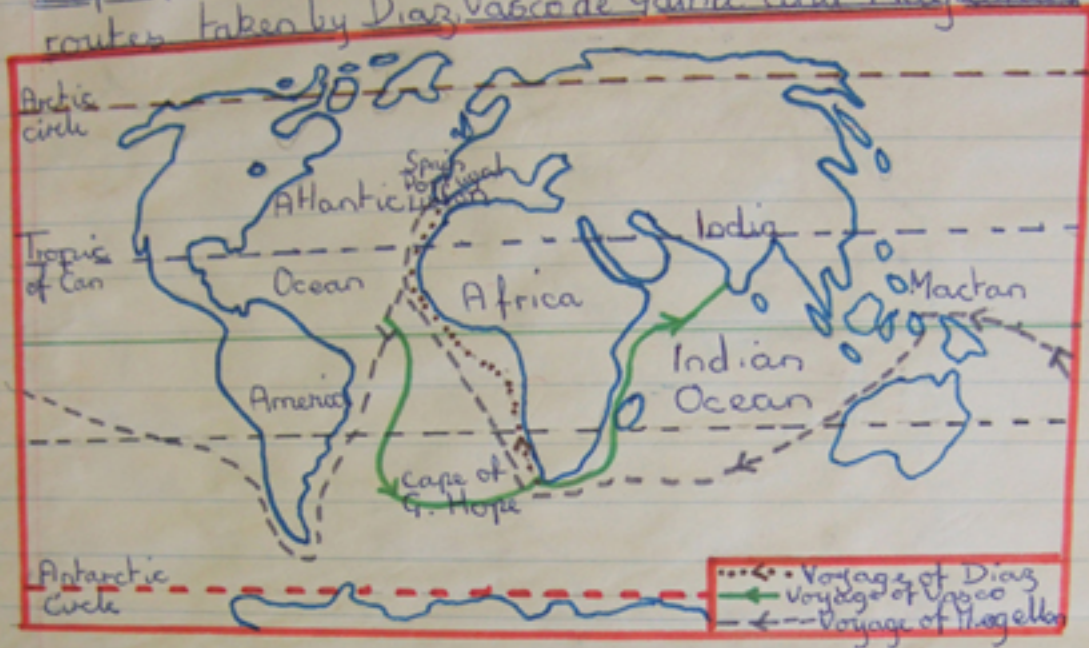 routes taken by Diaz, Vasco de
Arctic
circle
Spain
Portugal
Atlantic
Tropic
of Can
India
Ocean
Africa
Mactan
Indian
Ocean
America
Cape of
G. Hope
Antarctic
Circle
Voyage of Diaz
Voyage of Vasco
Voyage of Magellan